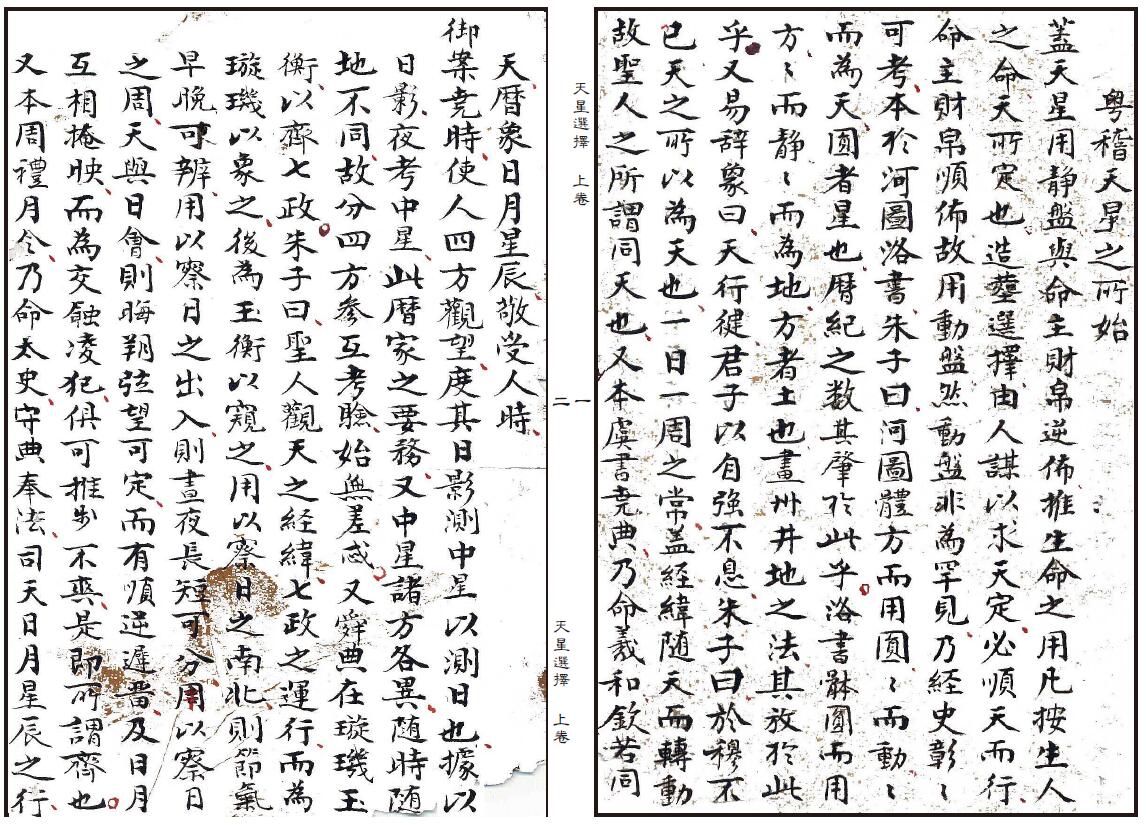 粤稽天星之所始
蓋天星用静盤與命主財帛逆佈推生命之用凡按生人
之命天所定也造塟選擇由人謀以求天定必順天而行
命主財帛順佈故用動盤然動盤非為罕見乃経史彰〻
可考本於河圖洛書朱子曰河圖體方而用圓〻而動〻
而為天圓者星也曆紀之数其肇於此乎洛書骵圓而用
方〻而静〻而為地方者土也畫州井地之法其放於此
乎又易辞象曰天行徤君子以自強不息朱子曰於穆不
已天之所以為天也一日一周之常盖経緯随天而轉動
故聖人之所謂同天也又本虞書堯典乃命羲和欽若同
天星選擇 上卷
一
天曆象日月星辰敬受人時
御桒堯時使人四方觀望度其日影測中星以測日也據以
日影夜考中星此曆家之要務又中星諸方各異随時随
地不同故分四方參互考驗始無差忒又舜典在璇璣玉
衡以齊七政朱子曰聖人觀天之経緯七政之運行而為
璇璣以象之後為玉衡以窺之用以察日之南北則節氣
早晚可辨用以察日之出入則晝夜長短可分用以察日
之周天與日會則晦朔弦望可定而有順逆遲畱及日月
互相掩映而為交蝕凌犯俱可推步不爽是即所謂齊也
又本周禮月令乃命太史守典奉法司天日月星辰之行
天星選擇 上卷
二